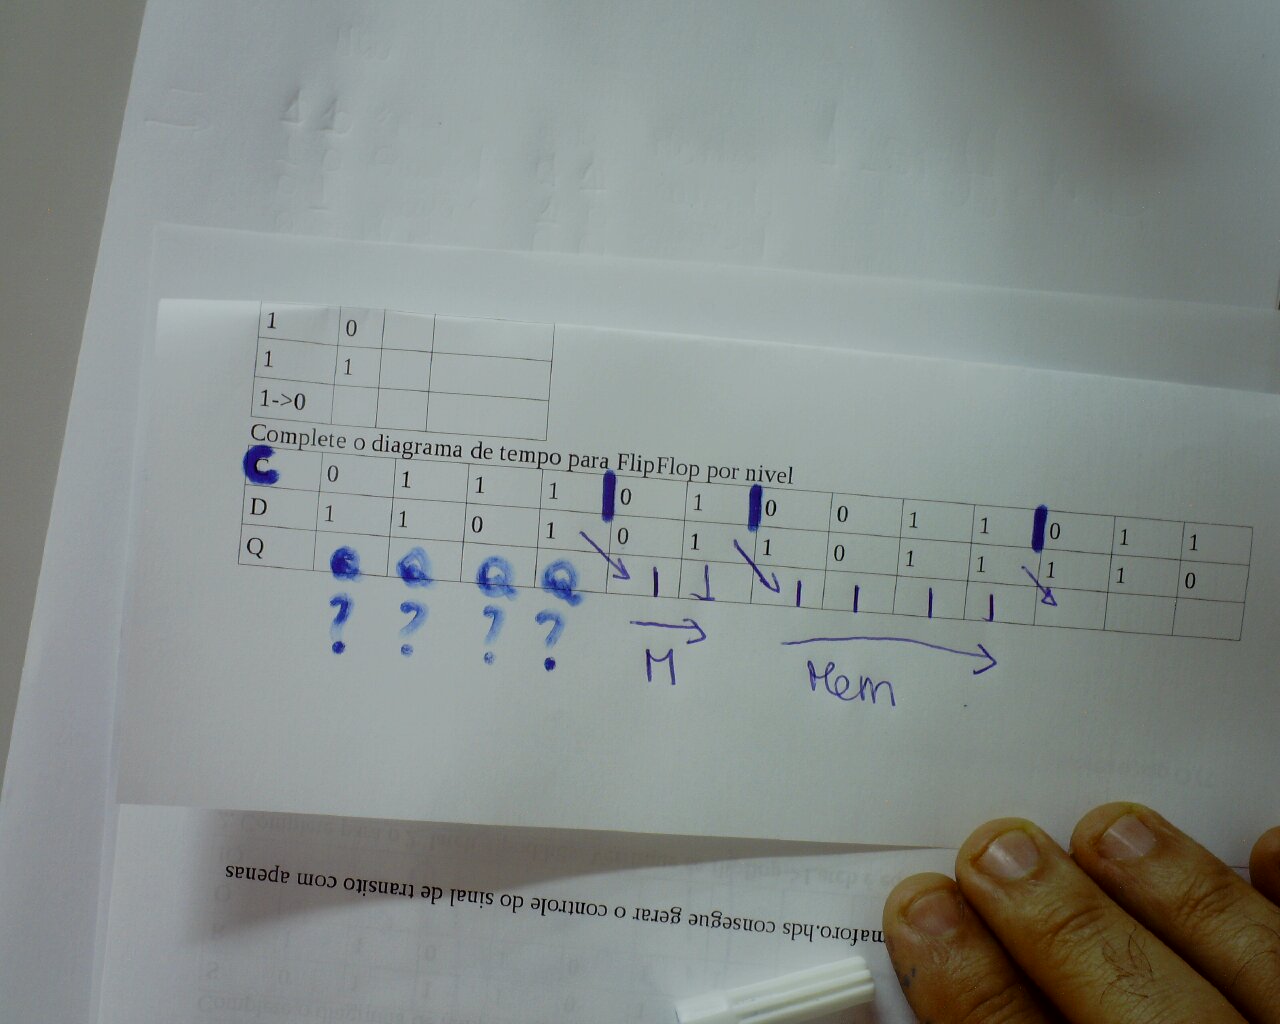 1 0
1 1
1->0
Complete o diagrama de tempo para FlipFlop por nivel
C 0 1 1 1 0 1 0 0 1 1 0 1 1
D 1 1 0 1 0 1 1 0 1 1 1 1 0
Q Q Q Q Q 1 1 1 1 1 1
? ? ? ?
M Mem
maforo.hds consegue gerar o controle do sinal de transito com apenas